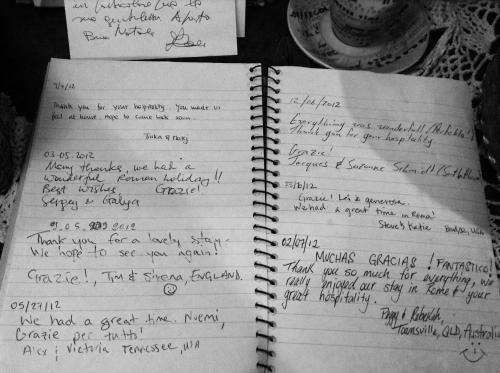 per
to
mo gentilezza
Buon Natale
Thank you for your hospitality. You made us
feel at home. Hope to come back soon.
03-05.2012
Many thanks, we had a
wonderful Roman holiday!!
Best wishes, Grazie!
Sergey & Galya
.05. 2012
Thank you for a lovely stay-
We hope to see you again!
Grazie!, Tim & ENGLAND.
05/27/12
We had a great time. Noemi,
Grazie per tutto!
Alex i Victoria Tennessee, USA
12/06/2012
Everything was wonderfull
Thank you for your hospitality
Grazie!
Jacques & Suzanne
Grazie! Lei è generosa.
We had a great time in Roma!
Steve & Katie USA
02/07/12
MUCHAS GRACIAS! FANTASTICO!
Thank you so much for everything, we
really enjoyed our stay in Rome & your
great hospitality.
Peggy & Rebekah,
Townsville, QLD, Australia